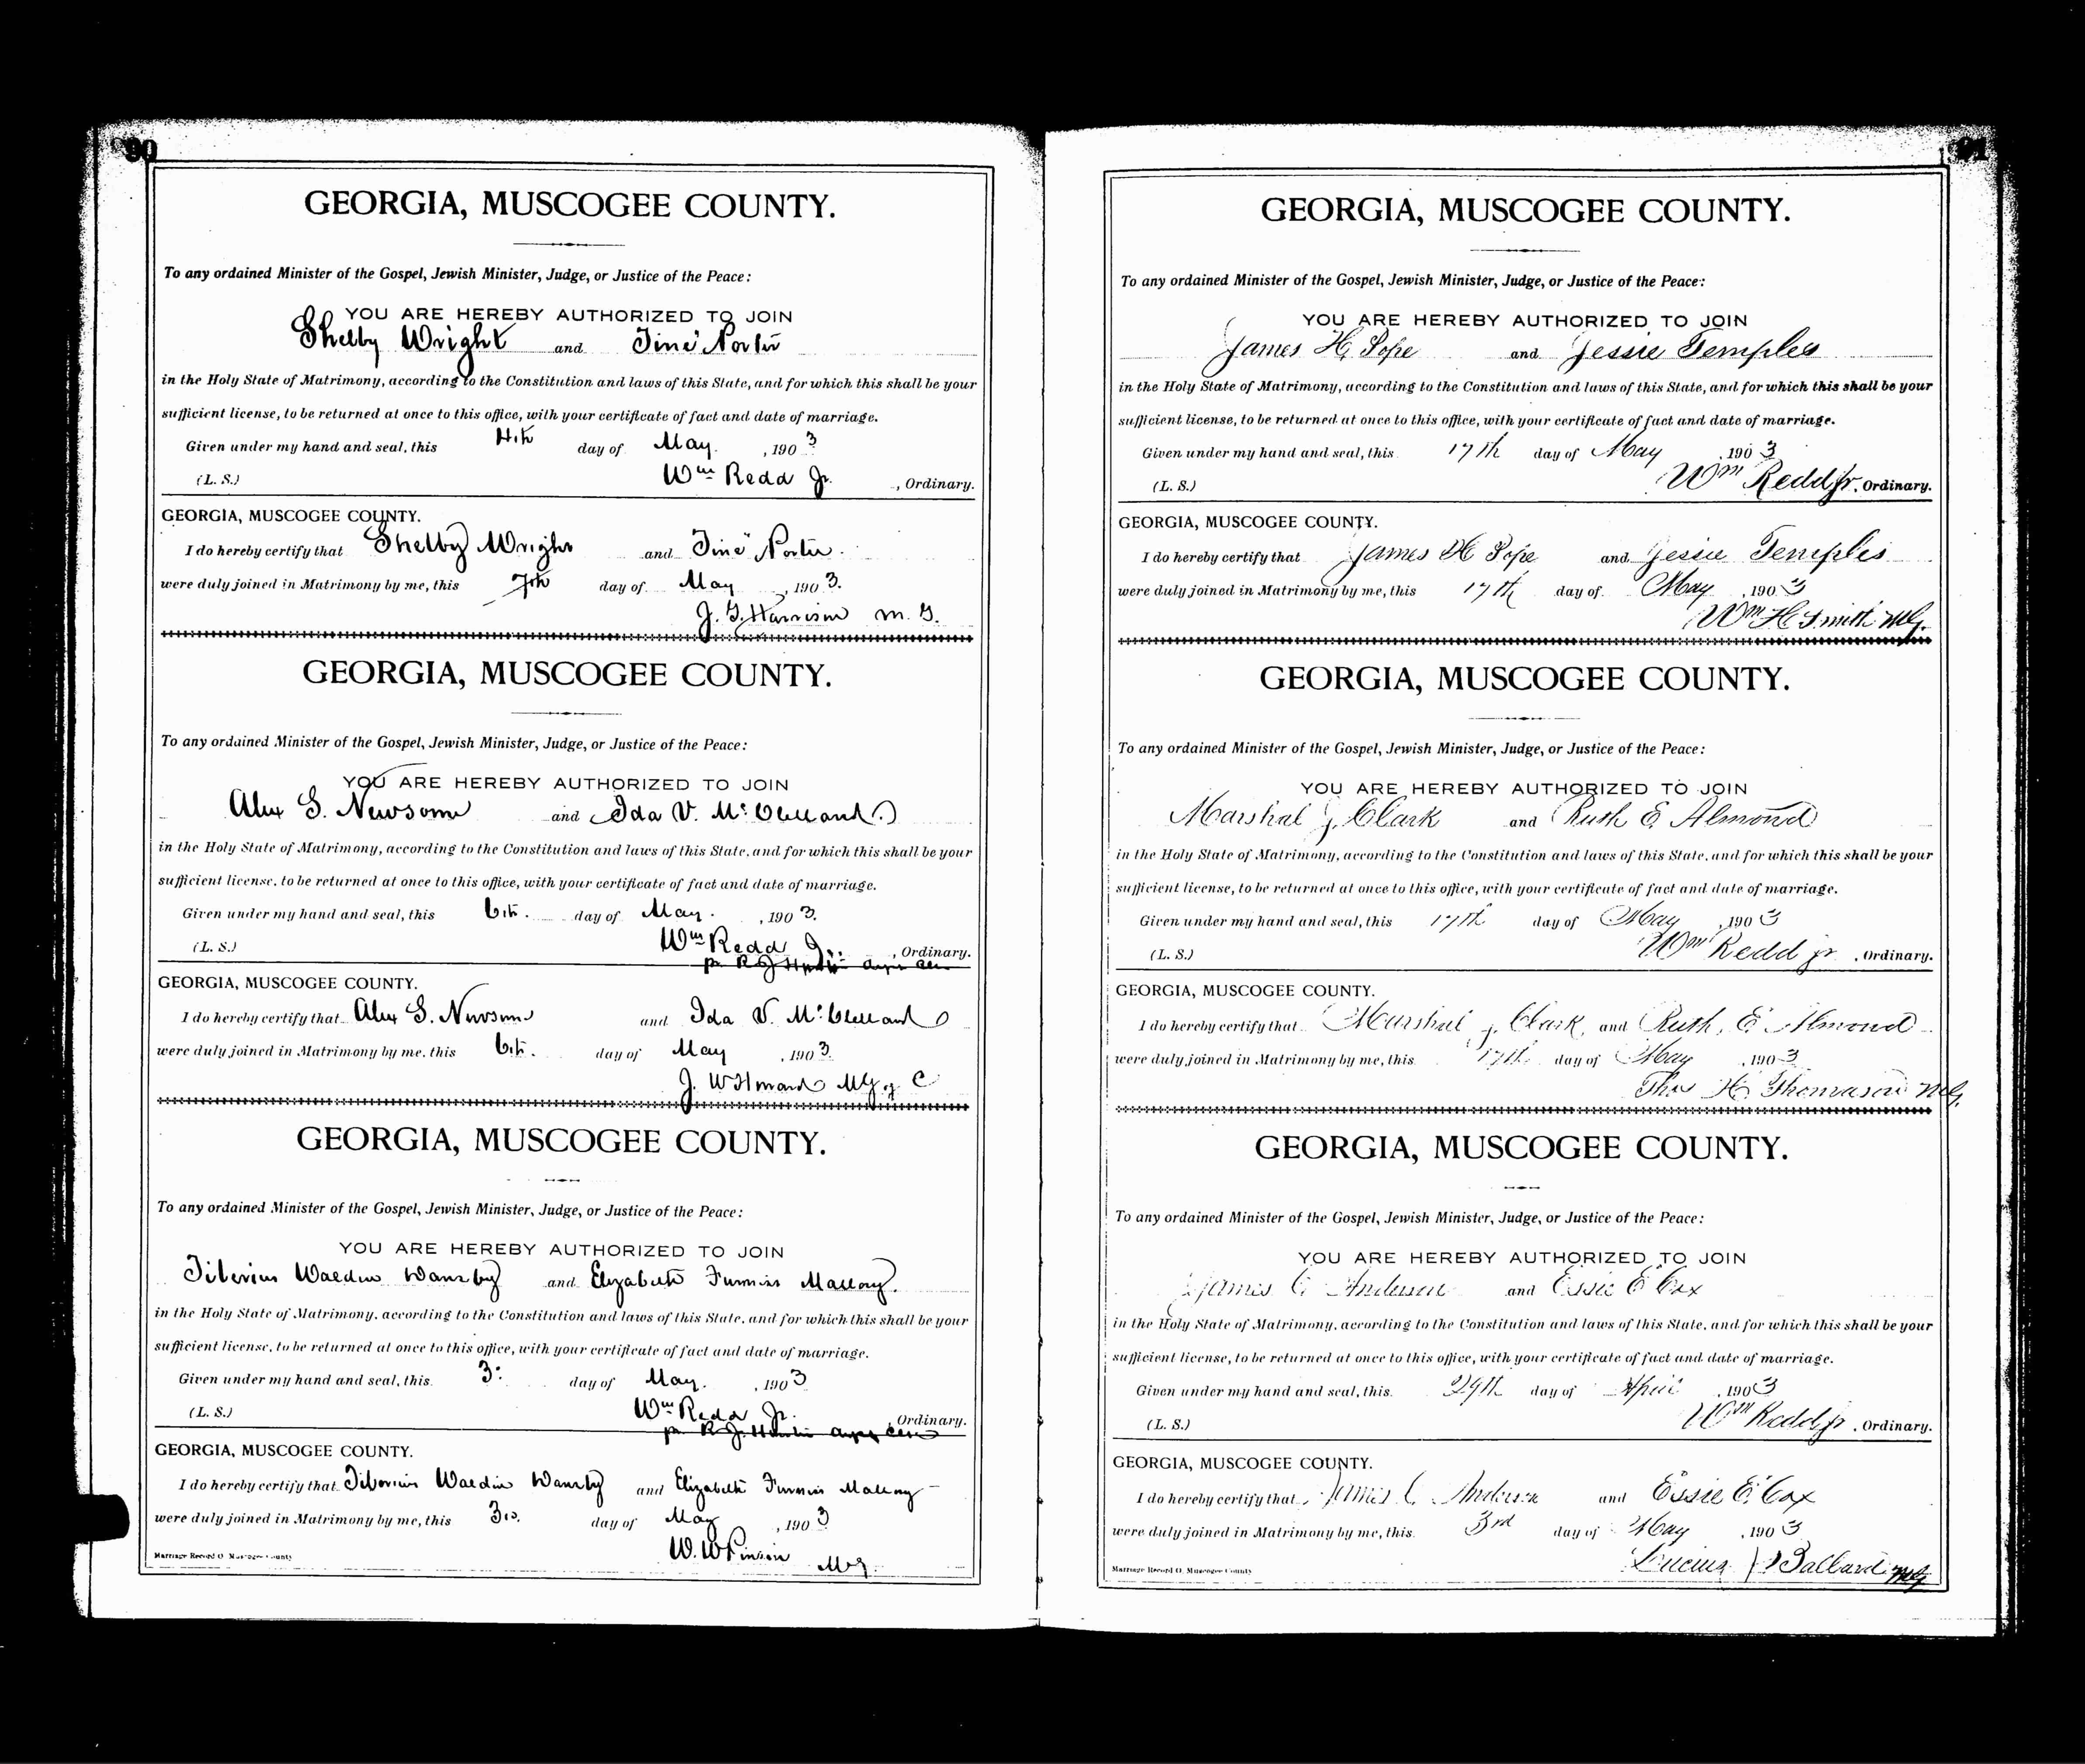 90
GEORGIA, MUSCOGEE COUNTY.
To any ordained Minister of the Gospel, Jewish Minister, Judge, or Justice of the Peace:
YOU ARE HEREBY AUTHORIZED TO JOIN
Shelby Wright and Tine Porter
in the Holy State of Matrimony, according to the Constitution and laws of this State, and for which this shall be your
sufficient license, to be returned at once to this office, with your certificate of fact and date of marriage.
Given under my hand and seal, this 4th day of May. , 1903
(L. S.) Wm Redd Jr. , Ordinary.
GEORGIA, MUSCOGEE COUNTY.
I do hereby certify that Shelby Wright and Tine Porter.
were duly joined in Matrimony by me, this 7th day of May , 1903.
J. G. Harrison M. G.
GEORGIA, MUSCOGEE COUNTY.
To any ordained Minister of the Gospel, Jewish Minister, Judge, or Justice of the Peace:
YOU ARE HEREBY AUTHORIZED TO JOIN
Alex S. Newsome and Ida V. McClelland
in the Holy State of Matrimony, according to the Constitution and laws of this State, and for which this shall be your
sufficient license, to be returned at once to this office, with your certificate of fact and date of marriage.
Given under my hand and seal, this 6th. day of May. , 1903.
(L. S.) Wm Redd Jr. , Ordinary.
GEORGIA, MUSCOGEE COUNTY.
I do hereby certify that Alex S. Newsome and Ida V. McClelland
were duly joined in Matrimony by me, this 6th. day of May , 1903.
J. W. Howard MG
GEORGIA, MUSCOGEE COUNTY.
To any ordained Minister of the Gospel, Jewish Minister, Judge, or Justice of the Peace:
YOU ARE HEREBY AUTHORIZED TO JOIN
Tiberius Waldin Wansby and Elizabeth Furniss Mallory.
in the Holy State of Matrimony, according to the Constitution and laws of this State, and for which this shall be your
sufficient license, to be returned at once to this office, with your certificate of fact and date of marriage.
Given under my hand and seal, this 3: day of May. , 1903
(L. S.) Wm Redd Jr. , Ordinary.
GEORGIA, MUSCOGEE COUNTY.
I do hereby certify that Tiberius Waldin Wansby and Elizabeth Furniss Mallory
were duly joined in Matrimony by me, this day of May , 1903
W. W. Pinson MG.
Marriage Record O. Muscogee County
GEORGIA, MUSCOGEE COUNTY.
To any ordained Minister of the Gospel, Jewish Minister, Judge, or Justice of the Peace:
YOU ARE HEREBY AUTHORIZED TO JOIN
James H. Pope and Jessie Temples
in the Holy State of Matrimony, according to the Constitution and laws of this State, and for which this shall be your
sufficient license, to be returned at once to this office, with your certificate of fact and date of marriage.
Given under my hand and seal, this 17th day of May , 1903
(L. S.) Wm Redd Jr. , Ordinary.
GEORGIA, MUSCOGEE COUNTY.
I do hereby certify that James H Pope and Jessie Temples
were duly joined in Matrimony by me, this 17th day of May , 1903
Wm H Smith MG.
GEORGIA, MUSCOGEE COUNTY.
To any ordained Minister of the Gospel, Jewish Minister, Judge, or Justice of the Peace:
YOU ARE HEREBY AUTHORIZED TO JOIN
Marshal J. Clark and Ruth E. Almond
in the Holy State of Matrimony, according to the Constitution and laws of this State, and for which this shall be your
sufficient license, to be returned at once to this office, with your certificate of fact and date of marriage.
Given under my hand and seal, this 17th day of May , 1903
(L. S.) Wm Redd Jr , Ordinary.
GEORGIA, MUSCOGEE COUNTY.
I do hereby certify that Marshal J. Clark, and Ruth, E. Almond
were duly joined in Matrimony by me, this 17th day of May , 1903
Thos H. Thomason MG.
GEORGIA, MUSCOGEE COUNTY.
To any ordained Minister of the Gospel, Jewish Minister, Judge, or Justice of the Peace:
YOU ARE HEREBY AUTHORIZED TO JOIN
James C. Anderson and Essie E Cox
in the Holy State of Matrimony, according to the Constitution and laws of this State, and for which this shall be your
sufficient license, to be returned at once to this office, with your certificate of fact and date of marriage.
Given under my hand and seal, this 29th day of April , 1903
(L. S.) Wm Redd Jr , Ordinary.
GEORGIA, MUSCOGEE COUNTY.
I do hereby certify that James C. Anderson and Essie E. Cox
were duly joined in Matrimony by me, this 3rd day of May , 1903
Lucius Ballard MG
Marriage Record O. Muscogee County